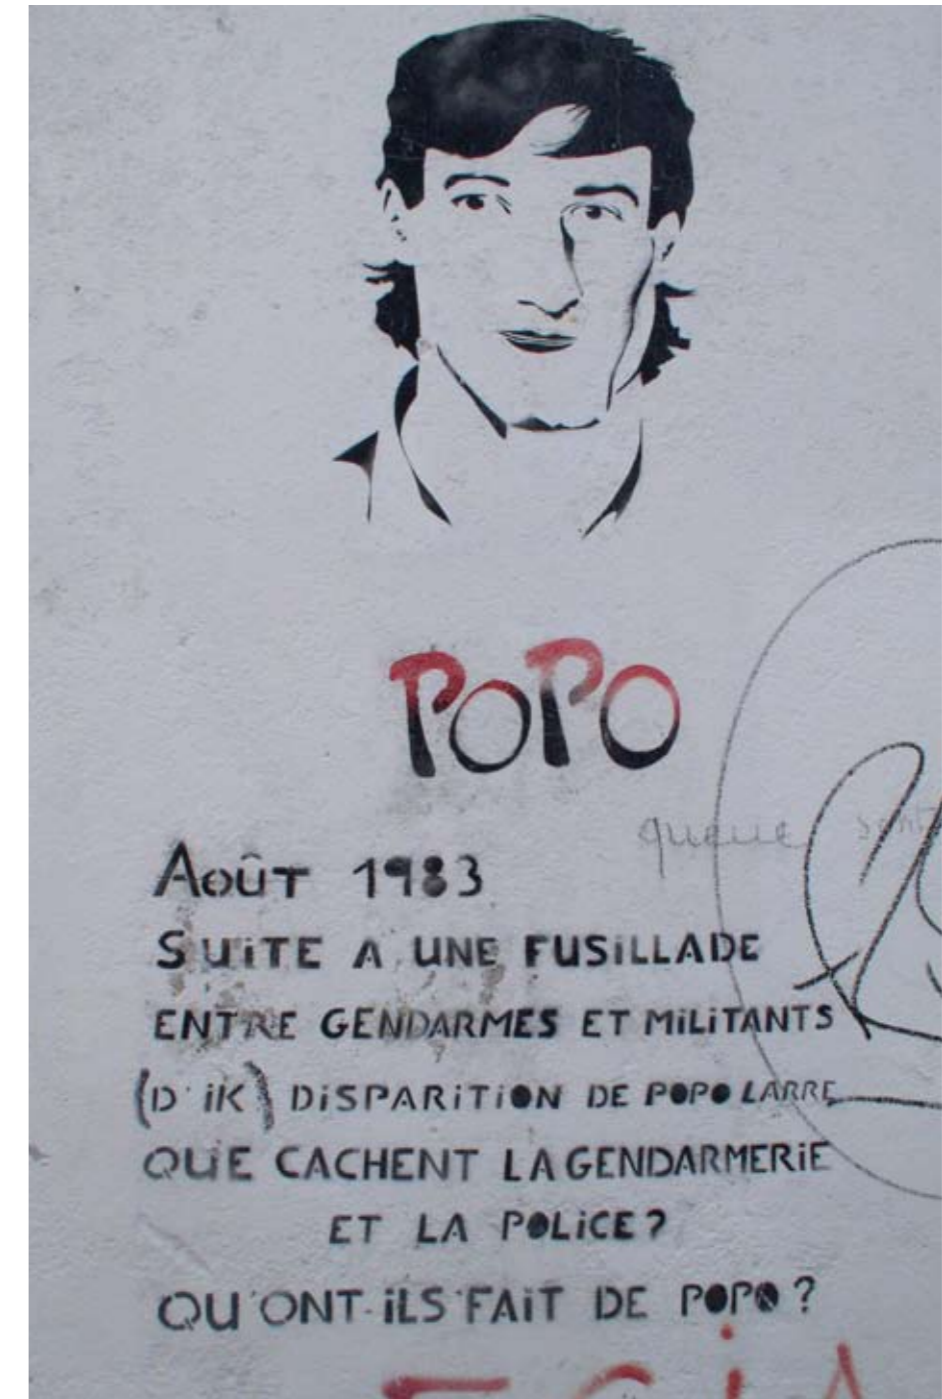 POPO
queue
Août 1983
SUiTE A UNE FUSiLLADE
ENTRE GENDARMES ET MiLiTANTS
(D'iK) DiSPARiTiON DE POPO LARRE
QUE CACHENT LA GENDARMERiE
ET LA POLiCE?
QU'ONT-iLS FAiT DE POPO?